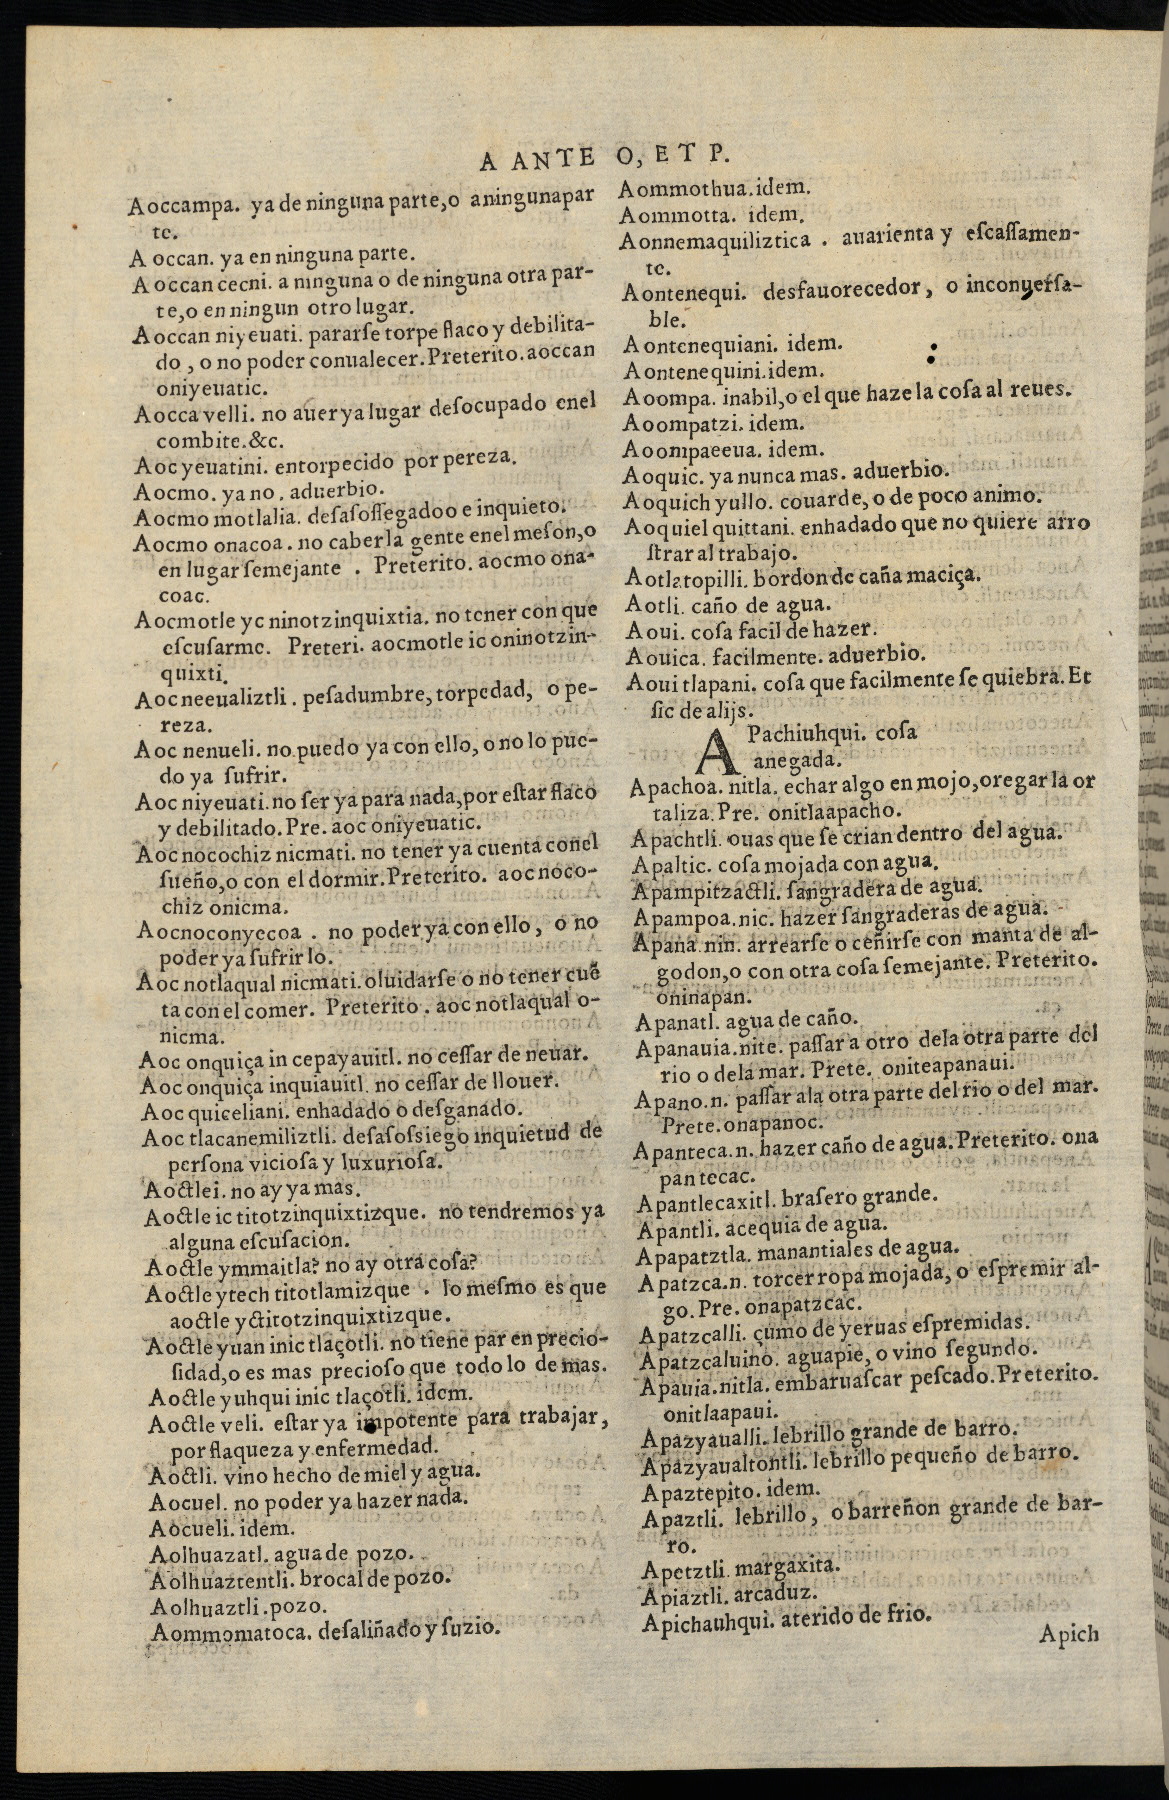 A ANTE O, ET P.
Aoccampa. ya de ninguna parte,o aningunapar
te.
Aoccan. ya en ninguna parte.
Aoccan cecni. a ninguna o de ninguna otra par-
te,o en ningun otro lugar.
Aoccan niyeuati. pararſe torpe flaco y debilita-
do , o no poder conualecer. Preterito. aoccan
oniyeuatic.
Aocca velli. no auer ya lugar deſocupado enel
combite.&c.
Aoc yeuatini. entorpecido por pereza.
Aocmo. ya no. aduerbio.
Aocmo motlalia. deſaſoſſegadoo e inquieto.
Aocmo onacoa. no caber la gente enel meſon,o
en lugar ſemejante . Preterito. aocmo ona-
coac.
Aocmotle yc ninotzinquixtia. no tener con que
eſcuſarme. Preteri. aocmotle ic oninotzin-
quixti.
Aocneeualiztli. peſadumbre, torpedad, o pe-
reza.
Aoc nenueli. no puedo ya con ello, o no lo pue-
do ya ſufrir.
Aoc niyeuati. no ſer ya para nada,por eſtar flaco
y debilitado. Pre. aoc oniyeuatic.
Aoc nocochiz nicmati. no tener ya cuenta conel
ſueño,o con el dormir. Preterito. aoc noco-
chiz onicma.
Aocnoconyecoa . no poder ya con ello, o no
poder ya ſufrirlo.
Aoc notlaqual nicmati. oluidarſe o no tener cuẽ
ta con el comer. Preterito. aoc notlaqual o-
nicma.
Aoc onquiça in cepayauitl. no ceſſar de neuar.
Aoc onquiça inquiauitl. no ceſſar de llouer.
Aoc quiceliani. enhadado o deſganado.
Aoc tlacanemiliztli. deſaſoſsiego inquietud de
perſona vicioſa y luxurioſa.
Aoctlei. no ay ya mas.
Aoctle ic titotzinquixtizque. no tendremos ya
alguna eſcuſacion.
Aoctle ymmaitla? no ay otra coſa?
Aoctle ytech titotlamizque . lo meſmo es que
aoctle yctitotzinquixtizque.
Aoctle yuan inic tlaçotli. no tiene par en precio-
ſidad,o es mas precioſo que todo lo de mas.
Aoctle yuhqui inic tlaçotli. idem.
Aoctle veli. eſtar ya impotente para trabajar,
por flaqueza y enfermedad.
Aoctli. vino hecho de miel y agua.
Aocuel. no poder ya hazer nada.
Aocueli. idem.
Aolhuazatl. agua de pozo.
Aolhuaztentli. brocal de pozo.
Aolhuaztli. pozo.
Aommomatoca. deſaliñado y ſuzio.
Aommothua. idem.
Aommotta. idem.
Aonnemaquiliztica . auarienta y eſcaſſamen-
te.
Aontenequi. desfauorecedor, o inconuerſa-
ble.
Aontenequiani. idem.
Aontenequini. idem.
Aoompa. inabil,o el que haze la coſa al reues.
Aoompatzi. idem.
Aoompaeeua. idem.
Aoquic. ya nunca mas. aduerbio.
Aoquich yullo. couarde, o de poco animo.
Aoquiel quittani. enhadado que no quiere arro
ſtrar al trabajo.
Aotlatopilli. bordon de caña maciça.
Aotli. caño de agua.
Aoui. coſa facil de hazer.
Aouica. facilmente. aduerbio.
Aoui tlapani. coſa que facilmente ſe quiebra. Et
ſic de alijs.
APachiuhqui. coſa
anegada.
Apachoa. nitla. echar algo en mojo,oregar la or
taliza. Pre. onitlaapacho.
Apachtli. ouas que ſe crian dentro del agua.
Apaltic. coſa mojada con agua.
Apampitzactli. ſangradera de agua.
Apampoa. nic. hazer ſangraderas de agua.
Apana. nin. arrearſe o ceñirſe con manta de al-
godon,o con otra coſa ſemejante. Preterito.
oninapan.
Apanatl. agua de caño.
Apanauia. nite. paſſar a otro dela otra parte del
rio o dela mar. Prete. oniteapanaui.
Apano. n. paſſar ala otra parte del rio o del mar.
Prete. onapanoc.
Apanteca. n. hazer caño de agua. Preterito. ona
pantecac.
Apantlecaxitl. braſero grande.
Apantli. acequia de agua.
Apapatztla. manantiales de agua.
Apatzca. n. torcer ropa mojada, o eſpremir al-
go. Pre. onapatzcac.
Apatzcalli. çumo de yeruas eſpremidas.
Apatzcaluino. aguapie, o vino ſegundo.
Apauia. nitla. embaruaſcar peſcado. Preterito.
onitlaapaui.
Apazyaualli. lebrillo grande de barro.
Apazyaualtontli. lebrillo pequeño de barro.
Apaztepito. idem.
Apaztli. lebrillo, o barreñon grande de bar-
ro.
Apetztli. margaxita.
Apiaztli. arcaduz.
Apichauhqui. aterido de frio.
Apich